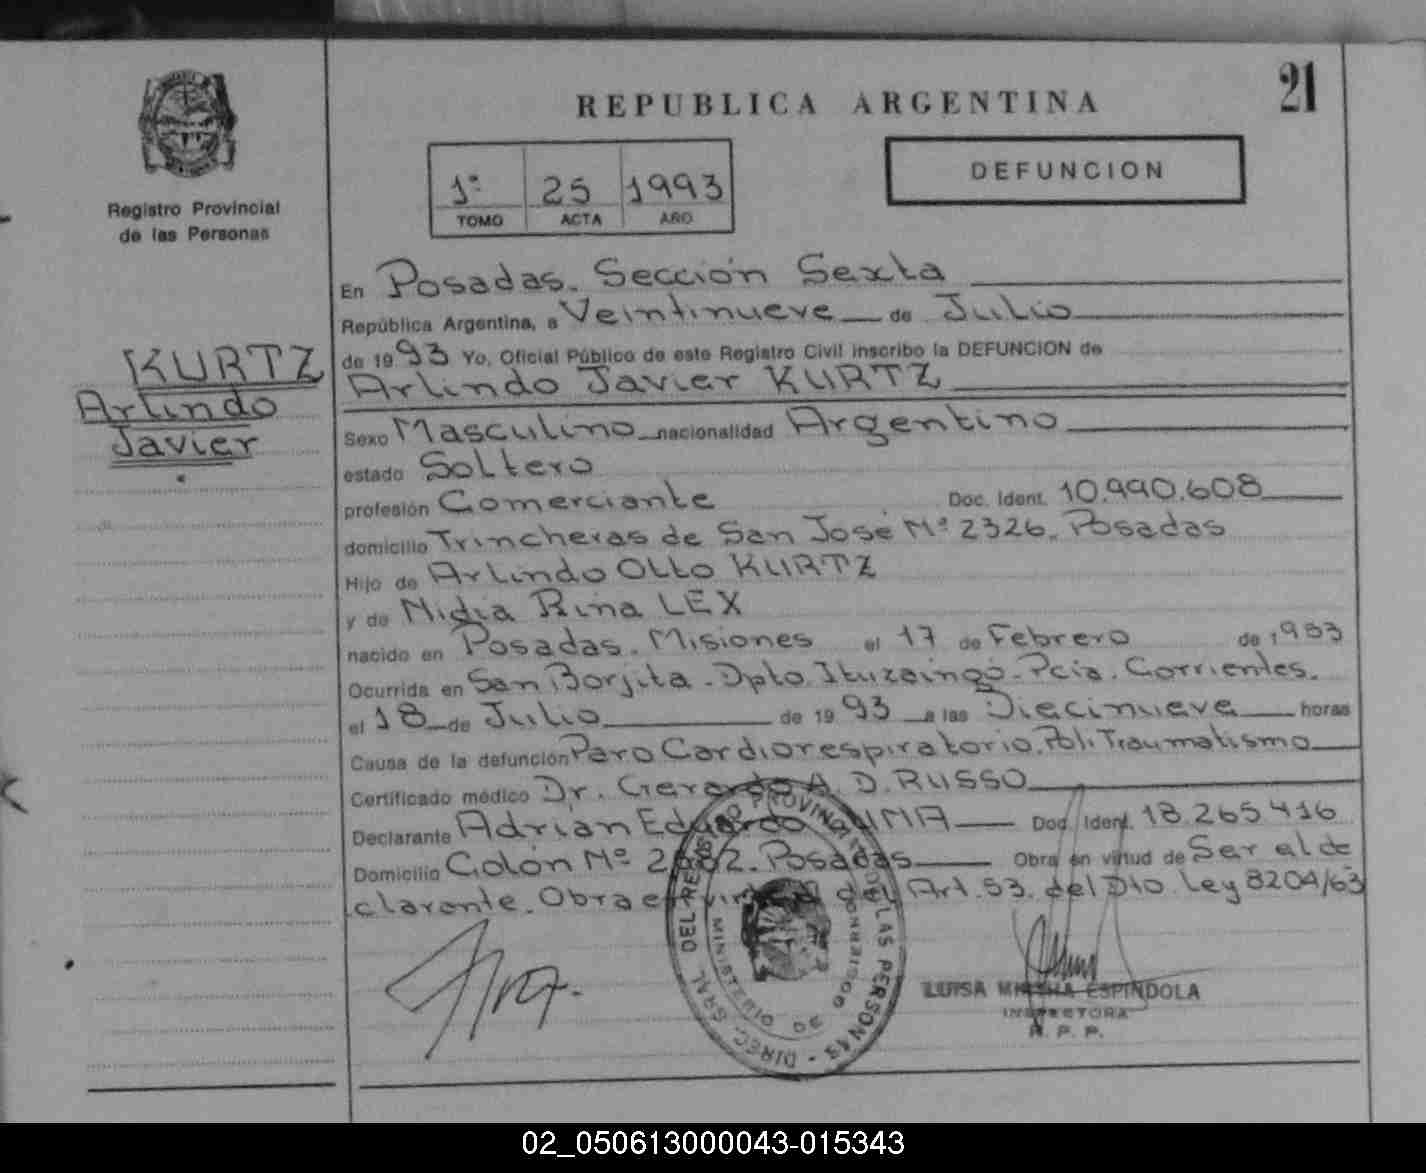 21
REPUBLICA ARGENTINA
1º 25 1993
TOMO ACTA AÑO
DEFUNCION
Registro Provincial
de las Personas
KURTZ
Arlindo
Javier
En Posadas. Sección Sexta
República Argentina, a Veintinueve de Julio
de 1993 Yo, Oficial Público de este Registro Civil inscribo la DEFUNCION de
Arlindo Javier KURTZ
Sexo Masculino nacionalidad Argentino
estado Soltero
profesión Comerciante Doc. Ident. 10.990.608
domicilio Trincheras de San José Nº 2326. Posadas
Hijo de Arlindo Otto KURTZ
y de Nidia Rina LEX
nacido en Posadas. Misiones el 17 de Febrero de
Ocurrida en San Borjita. Dpto. Ituzaingó. Pcia. Corrientes.
el 18 de Julio de 1993 a las Diecinueve horas
Causa de la defunción Paro Cardiorespiratorio. PoliTraumatismo
Certificado médico Dr. Gerardo A. D. RUSSO
Declarante Adrián Eduardo Doc. Ident. 18.265.416
Domicilio Colón Nº Posadas Obra en virtud de Ser el de
clarante. Obra en virtud del Art. 53. del Dto. Ley 8204/63
DIREC. GRAL. DEL REGISTRO PROVINCIAL DE LAS PERSONAS
MINISTERIO DE GOBIERNO
LUISA ESPINDOLA
INSPECTORA
R. P. P.
02_050613000043-015343